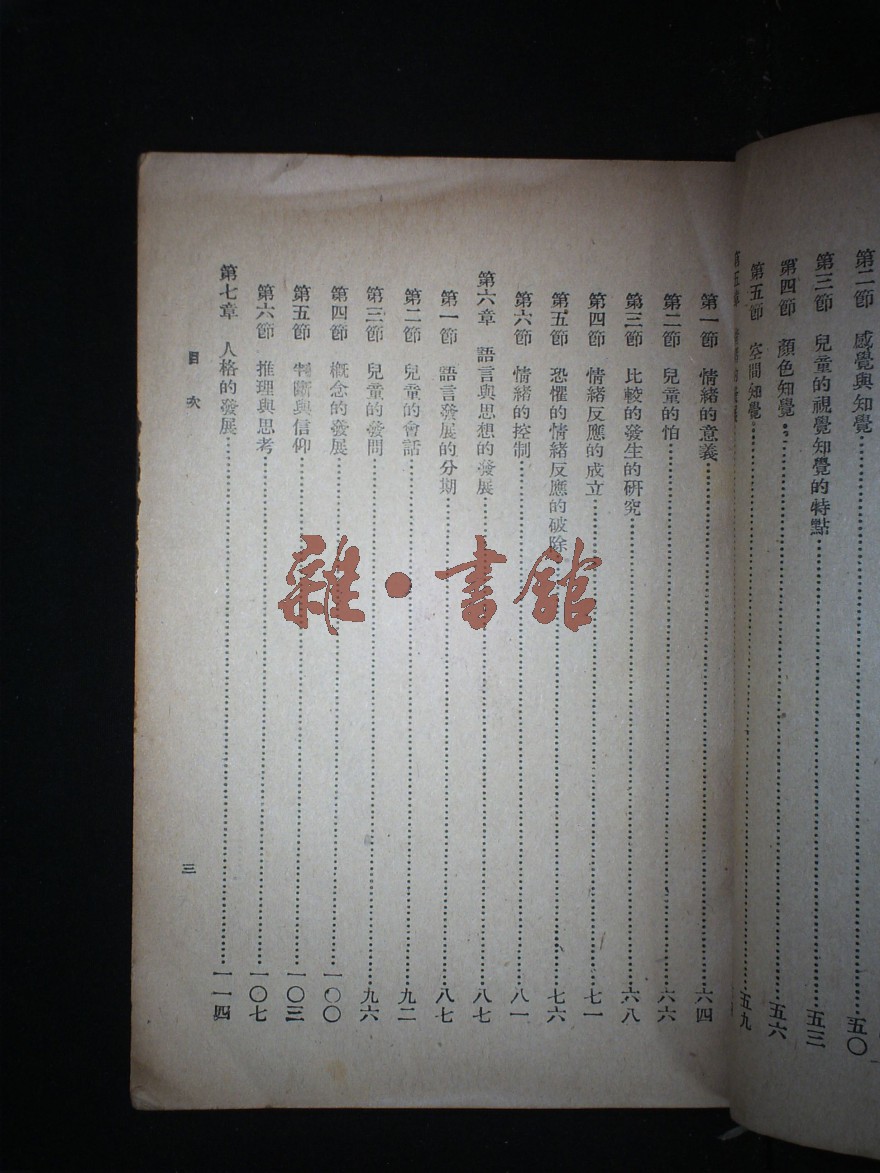 第二節 感覺與知覺……五〇
第三節 兒童的視覺知覺的特點……五三
第四節 顏色知覺……五六
第五節 空間知覺……五九
第一節 情緒的意義……六四
第二節 兒童的怕……六六
第三節 比較的發生的研究……六八
第四節 情緒反應的成立……七一
第五節 恐懼的情緒反應的破除……七六
第六節 情緒的控制……八一
第六章 語言與思想的發展……八七
第一節 語言發展的分期……八七
第二節 兒童的會話……九二
第三節 兒童的發問……九六
第四節 概念的發展……一〇〇
第五節 判斷與信仰……一〇三
第六節 推理與思考……一〇七
第七章 人格的發展……一一四
目次
三
雜·書館